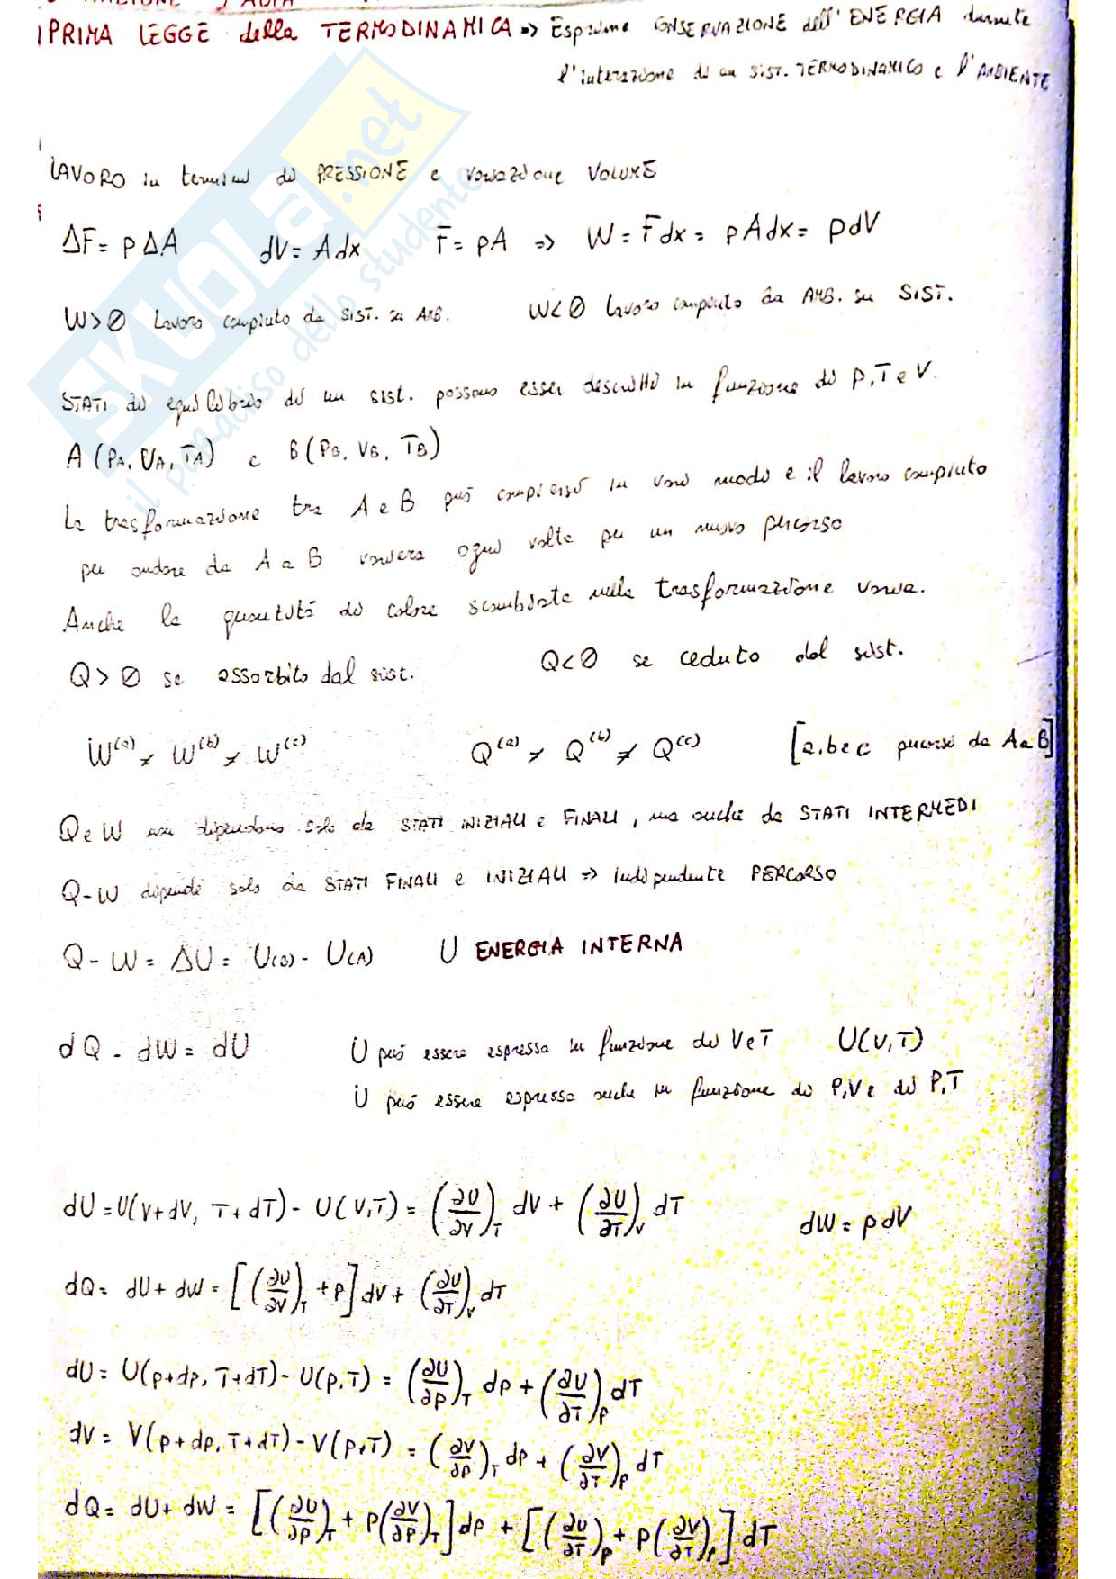 PRIMA LEGGE della TERMODINAMICA => Esprime CONSERVAZIONE dell'ENERGIA durante
l'interazione di un SIST. TERMODINAMICO e l'AMBIENTE
LAVORO in termini di PRESSIONE e variazione VOLUME
ΔF = p ΔA dV = A dx F = pA => W = F dx = pAdx = pdV
W>0 Lavoro compiuto da SIST. su AMB. W<0 lavoro compiuto da AMB. su SIST.
STATI di equilibrio di un sist. possono esser descritti in funzione di P, T e V.
A (PA, VA, TA) e B (PB, VB, TB)
La trasformazione tra A e B può compiersi in vari modi e il lavoro compiuto
per andare da A a B varierà ogni volta per un nuovo percorso
Anche la quantità di calore scambiata nella trasformazione varia.
Q>0 se assorbito dal sist. Q<0 se ceduto dal sist.
W(a) ≠ W(b) ≠ W(c) Q(a) ≠ Q(b) ≠ Q(c) [a, b e c percorsi da A a B]
Q e W non dipendono solo da STATI INIZIALI e FINALI, ma anche da STATI INTERMEDI
Q-W dipende solo da STATI FINALI e INIZIALI => indipendente PERCORSO
Q - W = ΔU = U(B) - U(A) U ENERGIA INTERNA
dQ - dW = dU U può essere espressa in funzione di V e T U(V,T)
U può essere espressa anche in funzione di P,V e di P,T
dU = U(V+dV, T+dT) - U(V,T) = (∂U/∂V)T dV + (∂U/∂T)V dT dW = pdV
dQ = dU + dW = [(∂U/∂V)T + p] dV + (∂U/∂T)V dT
dU = U(p+dp, T+dT) - U(p,T) = (∂U/∂p)T dp + (∂U/∂T)p dT
dV = V(p+dp, T+dT) - V(p,T) = (∂V/∂p)T dp + (∂V/∂T)p dT
dQ = dU + dW = [(∂U/∂p)T + p(∂V/∂p)T] dp + [(∂U/∂T)p + p(∂V/∂T)p] dT
SKUOLA.net
il paradiso dello studente